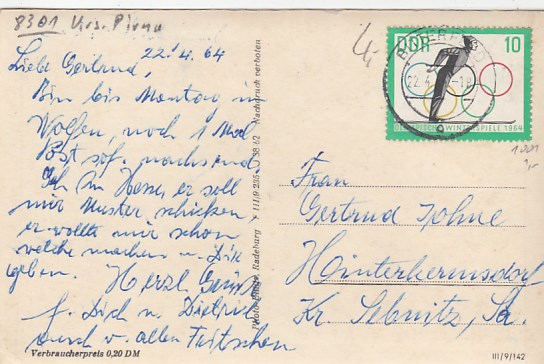 8301 Krs. Pirna
22.4.64
Liebe Gertrud,
Bin bis Montag in
Wolfen, noch 1 Mal
Post sof. nachsend.
Ich in Hesse, er soll
mir Muster schicken,
er wollte mir schon
welche machen u. Dir
geben. Herzl. Grüße
f. Dich u. Dietrich
auch v. allen Fritschen
Verbraucherpreis 0,20 DM
V 111/9 235 38 62 Nachdruck verboten
Radeburg
DDR 10
22.4.
-18
OLYMPISCHE WINTERSPIELE 1964
1001
Frau
Gertrud Johne
Hinterhermsdorf
Kr. Sebnitz, Sa.
III/9/142